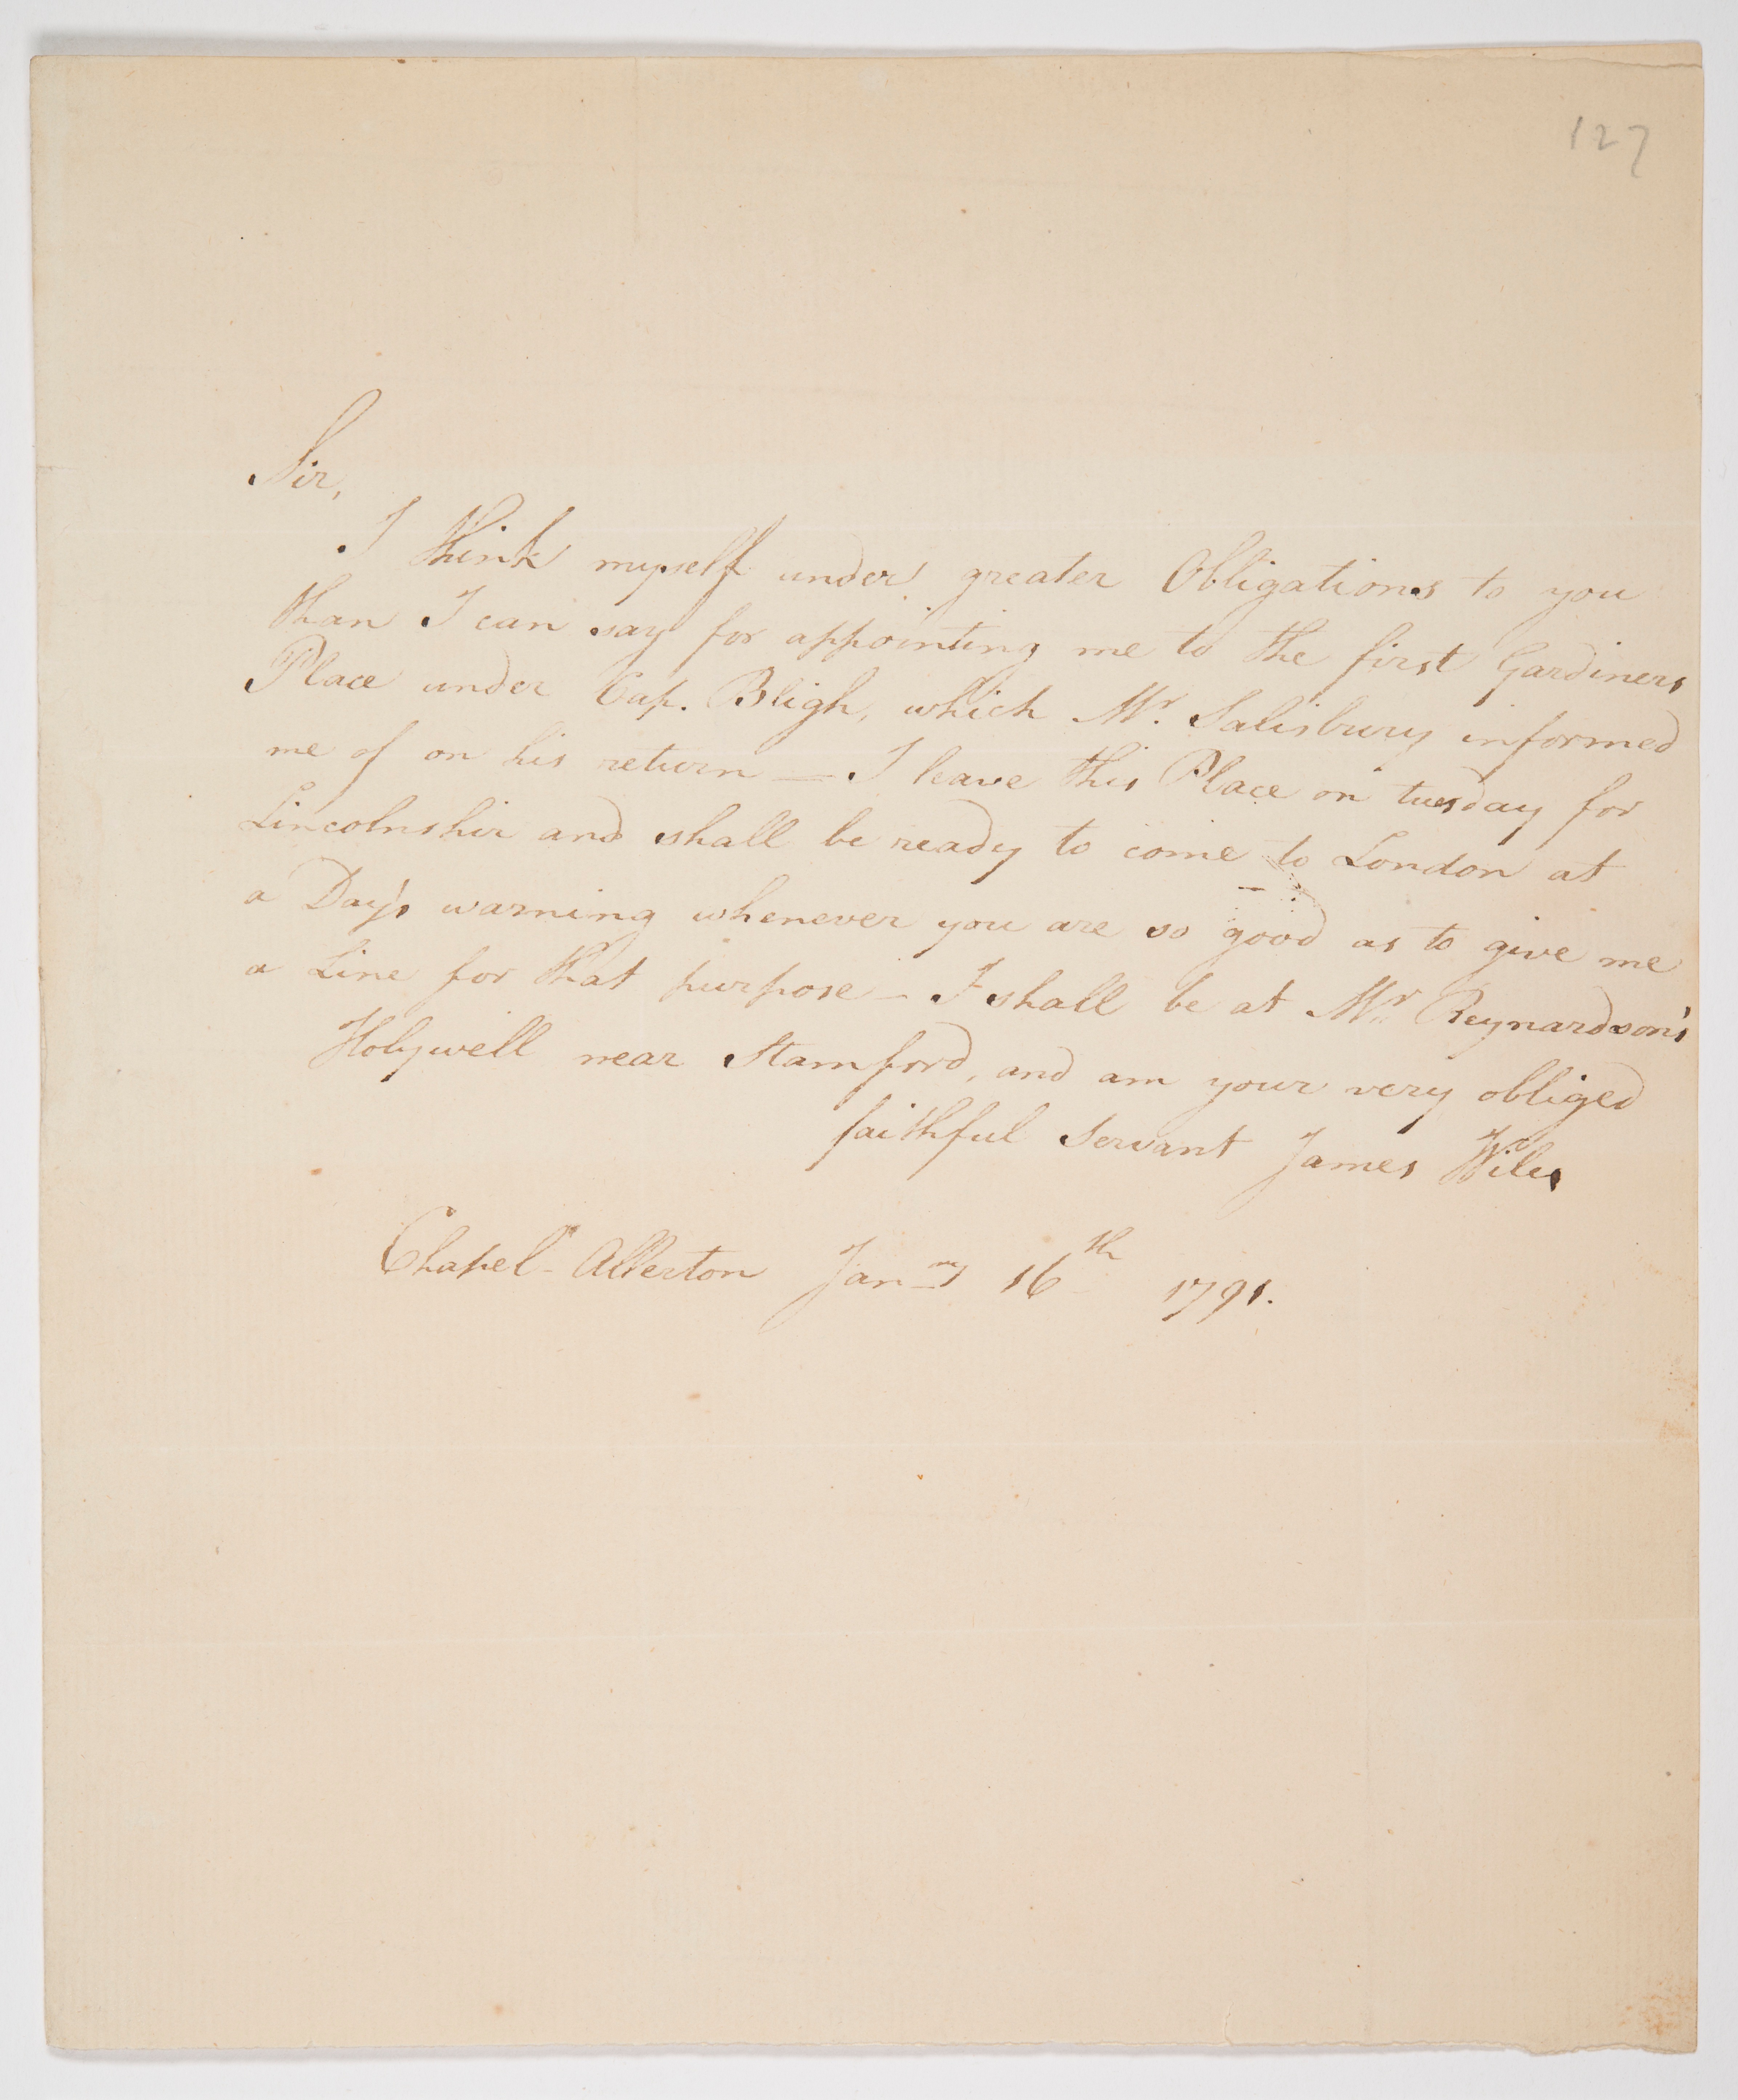 127
Sir,
I think myself under greater Obligations to you
than I can say for appointing me to the first Gardiners
Place under Cap. Bligh, which Mr. Salisbury informed
me of on his return — I leave this Place on tuesday for
Lincolnshir and shall be ready to come to London at
a Day's warning whenever you are so good as to give me
a Line for that purpose — I shall be at Mr Reynardson's
Holywell near Stamford, and am your very obliged
faithful Servant James Wiles
Chapel-Allerton Janry 16th 1791.